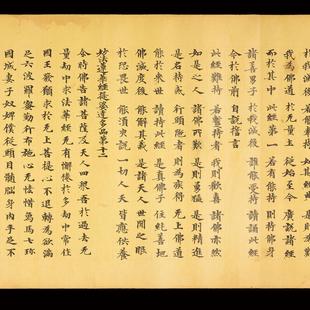 我為佛道 於无量土 從始至今 廣說諸經
而於其中 此經第一 若有能持 則持佛身
諸善男子 於我滅後 誰能受持 讀誦此經
今於佛前 自說誓言
此經難持 若暫持者 我則歡喜 諸佛亦然
如是之人 諸佛所歎 是則勇猛 是則精進
是名持戒 行頭陀者 則為疾得 无上佛道
能於來世 讀持此經 是真佛子 住淳善地
佛滅度後 能解其義 是諸天人 世間之眼
於恐畏世 能須臾說 一切天人 皆應供養
妙法蓮華經提婆達多品第十二
尒時佛告諸菩薩及天人四眾吾於過去无
量劫中求法華經无有懈惓於多劫中常作
國王發願求於无上菩提心不退轉為欲滿
足六波羅蜜勤行布施心无悋惜象馬七珍
國城妻子奴婢僕從頭目髓腦身肉手足不